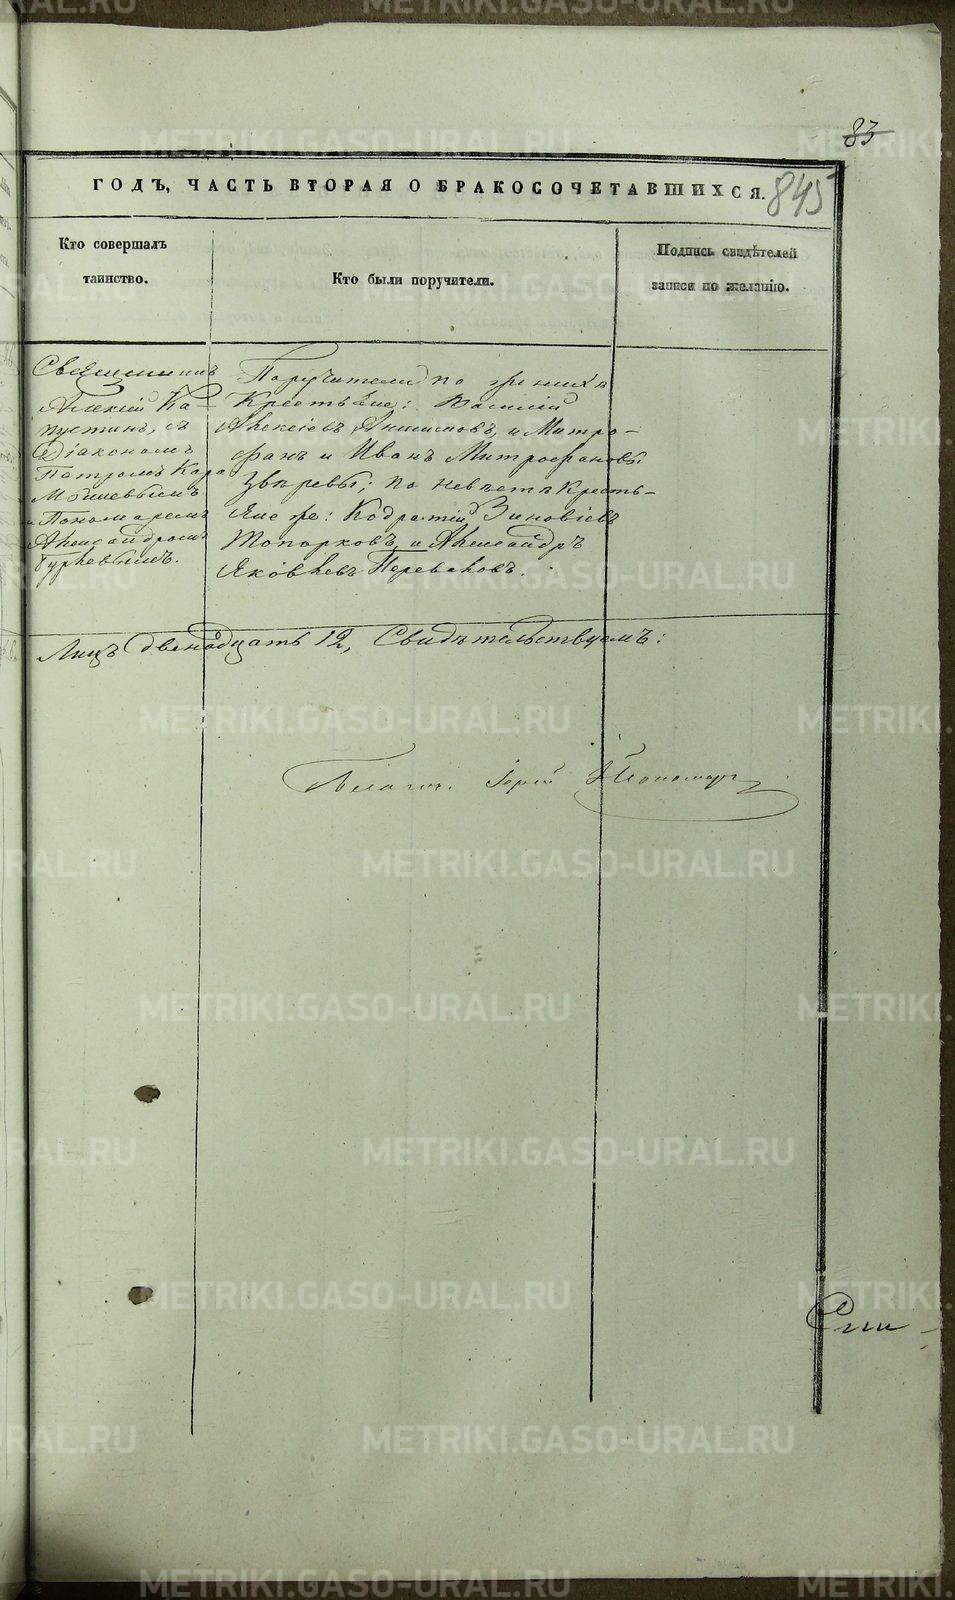 83
ГОДЪ, ЧАСТЬ ВТОРАЯ О БРАКОСОЧЕТАВШИХСЯ.
845
Кто совершалъ
таинство.
Кто были поручители.
Подпись свидѣтелей
записи по желанію.
Священникъ
Алексій Ка-
пустинъ, съ
Діакономъ
Петромъ Кара
Мышевымъ
и Пономаремъ
Александромъ
Поручители по женихѣ
Крестьяне: Василій
Алексіевъ Акишиовъ, и Митро-
фанъ и Иванъ Митрофановы
Звѣревы; по невѣстѣ Кресть-
яне же: Кодратій Зиновіевъ
Топорковъ и Александръ
Яковлевъ Переваловъ.
Лицъ двенадцать 12, Свидѣтельствуемъ:
Іерей
METRIKI.GASO-URAL.RU